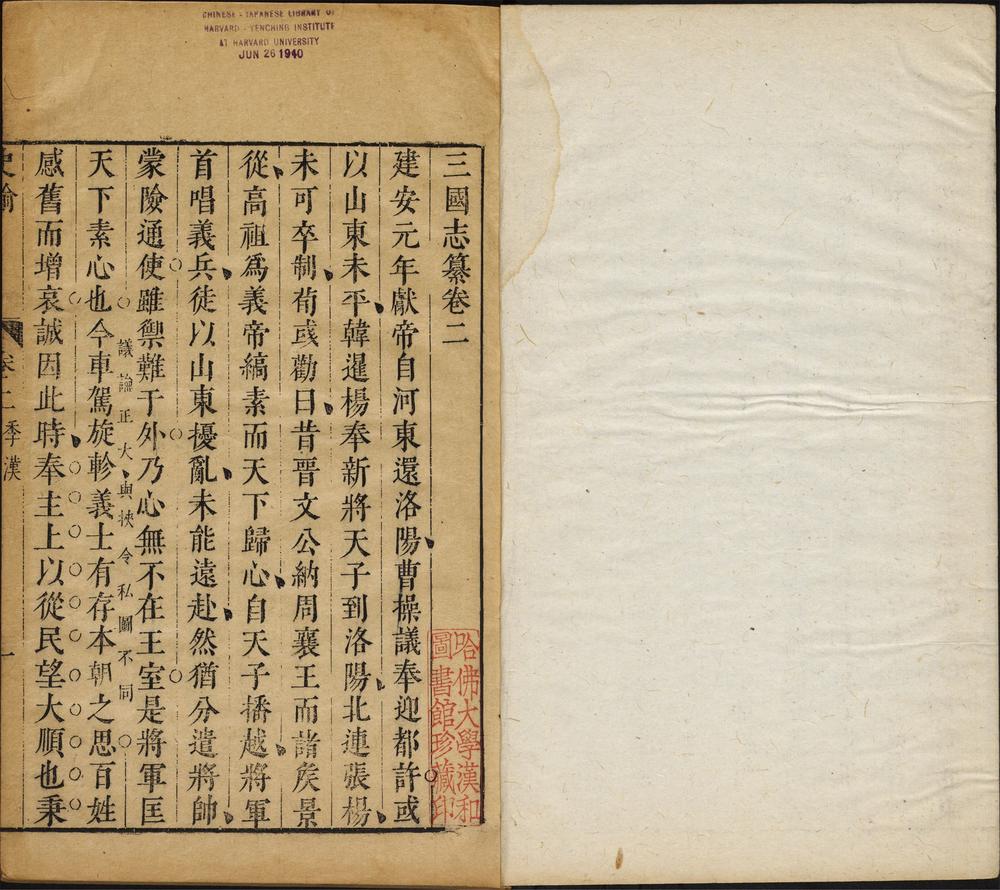 CHINESE - JAPANESE LIBRARY OF
HARVARD - YENCHING INSTITUTE
AT HARVARD UNIVERSITY
JUN 26 1940
三國志纂卷二
建安元年獻帝自河東還洛陽曹操議奉迎都許或
以山東未平韓暹楊奉新將天子到洛陽北連張楊
未可卒制荀彧勸曰昔晉文公納周襄王而諸矦景
從高祖爲義帝縞素而天下歸心自天子播越將軍
首唱義兵徒以山東擾亂未能遠赴然猶分遣將帥
蒙險通使雖禦難于外乃心無不在王室是將軍匡
議論正大與挾令私圖不同
天下素心也今車駕旋軫義士有存本朝之思百姓
感舊而增哀誠因此時奉主上以從民望大順也秉
卷二 季漢
一
哈佛大學漢和
圖書館珍藏印